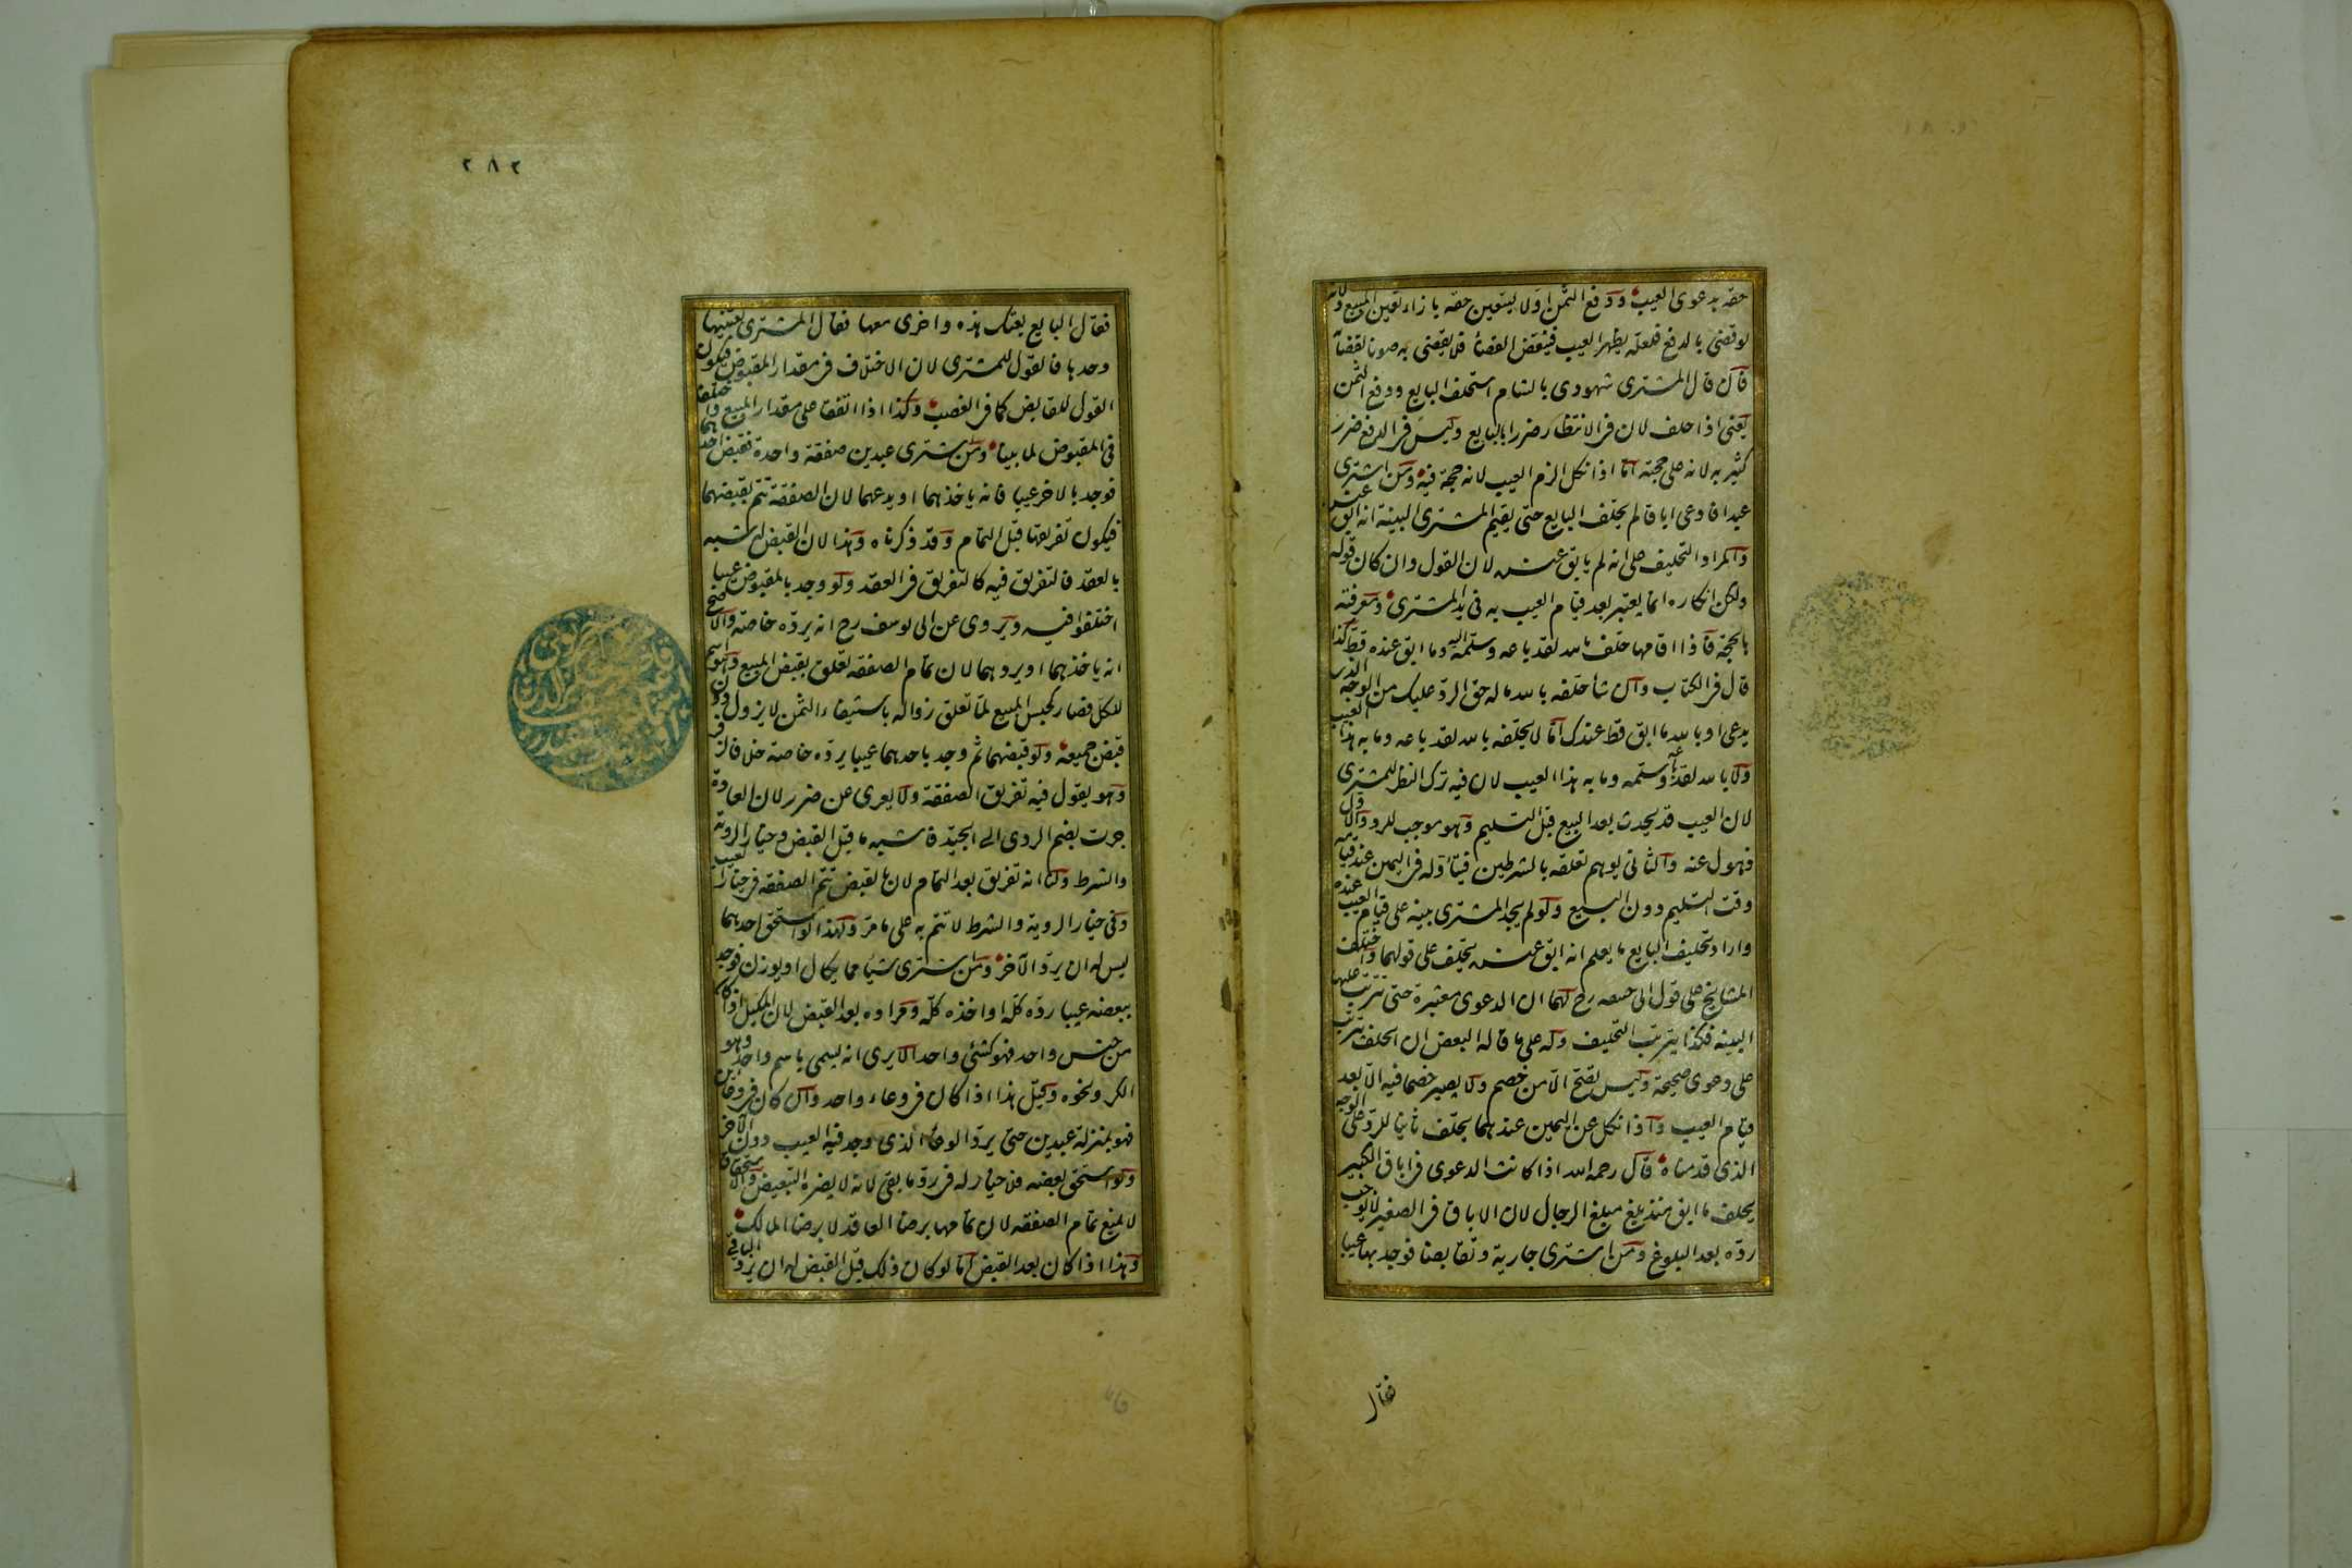 حقه بدعوى العيب ودفع الثمن اولا ليتعين حقه بازاء تعين المبيع ولانه
لو قضى بالدفع فلعله يظهر العيب فينتقض القضاء فلا يقضى به صونا لقضائه
فان قال المشترى شهودى بالشام استحلف البايع ودفع الثمن
يعنى اذا حلف لان فى الانتظار ضررا بالبايع وليس فى الدفع ضرر
كثير به لانه على حجته اما اذا نكل الزم العيب لانه حجة فيه ومن اشترى
عبدا فادعى اباقا لم يحلف البايع حتى يقيم المشترى البينة انه ابق عنده
والمراد التحليف على انه لم يابق عنده لان القول وان كان قوله
ولكن انكاره انما يعتبر بعد قيام العيب به فى يد المشترى ومعرفته
بالحجة فاذا اقامها حلف بالله لقد باعه وسلمه اليه وما ابق عنده قط كذا
قال فى الكتاب وان شاء حلفه بالله ما له حق الرد عليك من الوجه الذى
يدعى او بالله ما ابق قط عندك اما لا يحلفه بالله لقد باعه وما به هذا العيب
ولا بالله لقد باعه وسلمه وما به هذا العيب لان فيه ترك النظر للمشترى
لان العيب قد يحدث بعد البيع قبل التسليم وهو موجب للرد والاول
ذهول عنه والثانى يوهم تعلقه بالشرطين فيتاوله فى اليمين عند قيامه
وقت التسليم دون البيع ولو لم يجد المشترى بينة على قيام العيب عنده
واراد تحليف البايع ما يعلم انه ابق عنده يحلف على قولهما واختلف
المشايخ على قول ابى حنيفه رح لهما ان الدعوى معتبرة حتى تترتب عليها
البينه فكذا يترتب التحليف وله على ما قاله البعض ان الحلف يترتب
على دعوى صحيحة وليس تصح الا من خصم ولا يصير خصما فيه الا بعد
قيام العيب واذا نكل عن اليمين عندهما يحلف ثانيا للرد على الوجه
الذى قدمناه قال رحمه الله اذا كانت الدعوى فى اباق الكبير
يحلف ما ابق منذ بلغ مبلغ الرجال لان الاباق فى الصغير لا يوجب
رده بعد البلوغ ومن اشترى جارية وتقابضا فوجد بها عيبا
فقال
٢٨٢
فقال البايع بعتك هذه واخرى معها فقال المشترى بعتنيها
وحدها فالقول للمشترى لان الاختلاف فى مقدار المقبوض فيكون
القول للقابض كما فى الغصب وكذا اذا اتفقا على مقدار المبيع واختلفا
فى المقبوض لما بينا ومن اشترى عبدين صفقة واحدة فقبض احدهما
فوجد بالاخر عيبا فانه ياخذهما او يدعهما لان الصفقة تتم بقبضهما
فيكون تفريقها قبل التمام وقد ذكرناه وهذا لان القبض له شبه
بالعقد فالتفريق فيه كالتفريق فى العقد ولو وجد بالمقبوض عيبا
اختلفوا فيه ويروى عن ابى يوسف رح انه يرده خاصة والاصح
انه ياخذهما او يردهما لان تمام الصفقه تعلق بقبض المبيع وهو اسم
للكل فصار كحبس المبيع لما تعلق زواله باستيفاء الثمن لا يزول دون
قبض جميعه ولو قبضهما ثم وجد باحدهما عيبا يرده خاصة خلافا لزفر
وهو يقول فيه تفريق الصفقة ولا يعرى عن ضرر لان العادة
جرت بضم الردى الى الجيد فاشبه ما قبل القبض وخيار الروية
والشرط ولنا انه تفريق بعد التمام لان بالقبض تتم الصفقه فى خيار العيب
وفى خيار الروية والشرط لا تتم به على ما مر ولهذا لو استحق احدهما
ليس له ان يرد الآخر ومن اشترى شيئا مما يكال او يوزن فوجد
ببعضه عيبا رده كله او اخذه كله ومراده بعد القبض لان المكيل اذا كان
من جنس واحد فهو كشئ واحد الا يرى انه يسمى باسم واحد وهو
الكر ونحوه وقيل هذا اذا كان فى وعاء واحد وان كان فى وعائين
فهو بمنزلة عبدين حتى يرد الوعاء الذى وجد فيه العيب دون الآخر
ولو استحق بعضه فلا خيار له فى رد ما بقى لانه لا يضره التبعيض والاستحقاق
لا يمنع تمام الصفقه لان تمامها برضا العاقد لا برضا المالك
وهذا اذا كان بعد القبض اما لو كان ذلك قبل القبض له ان يرد الباقى